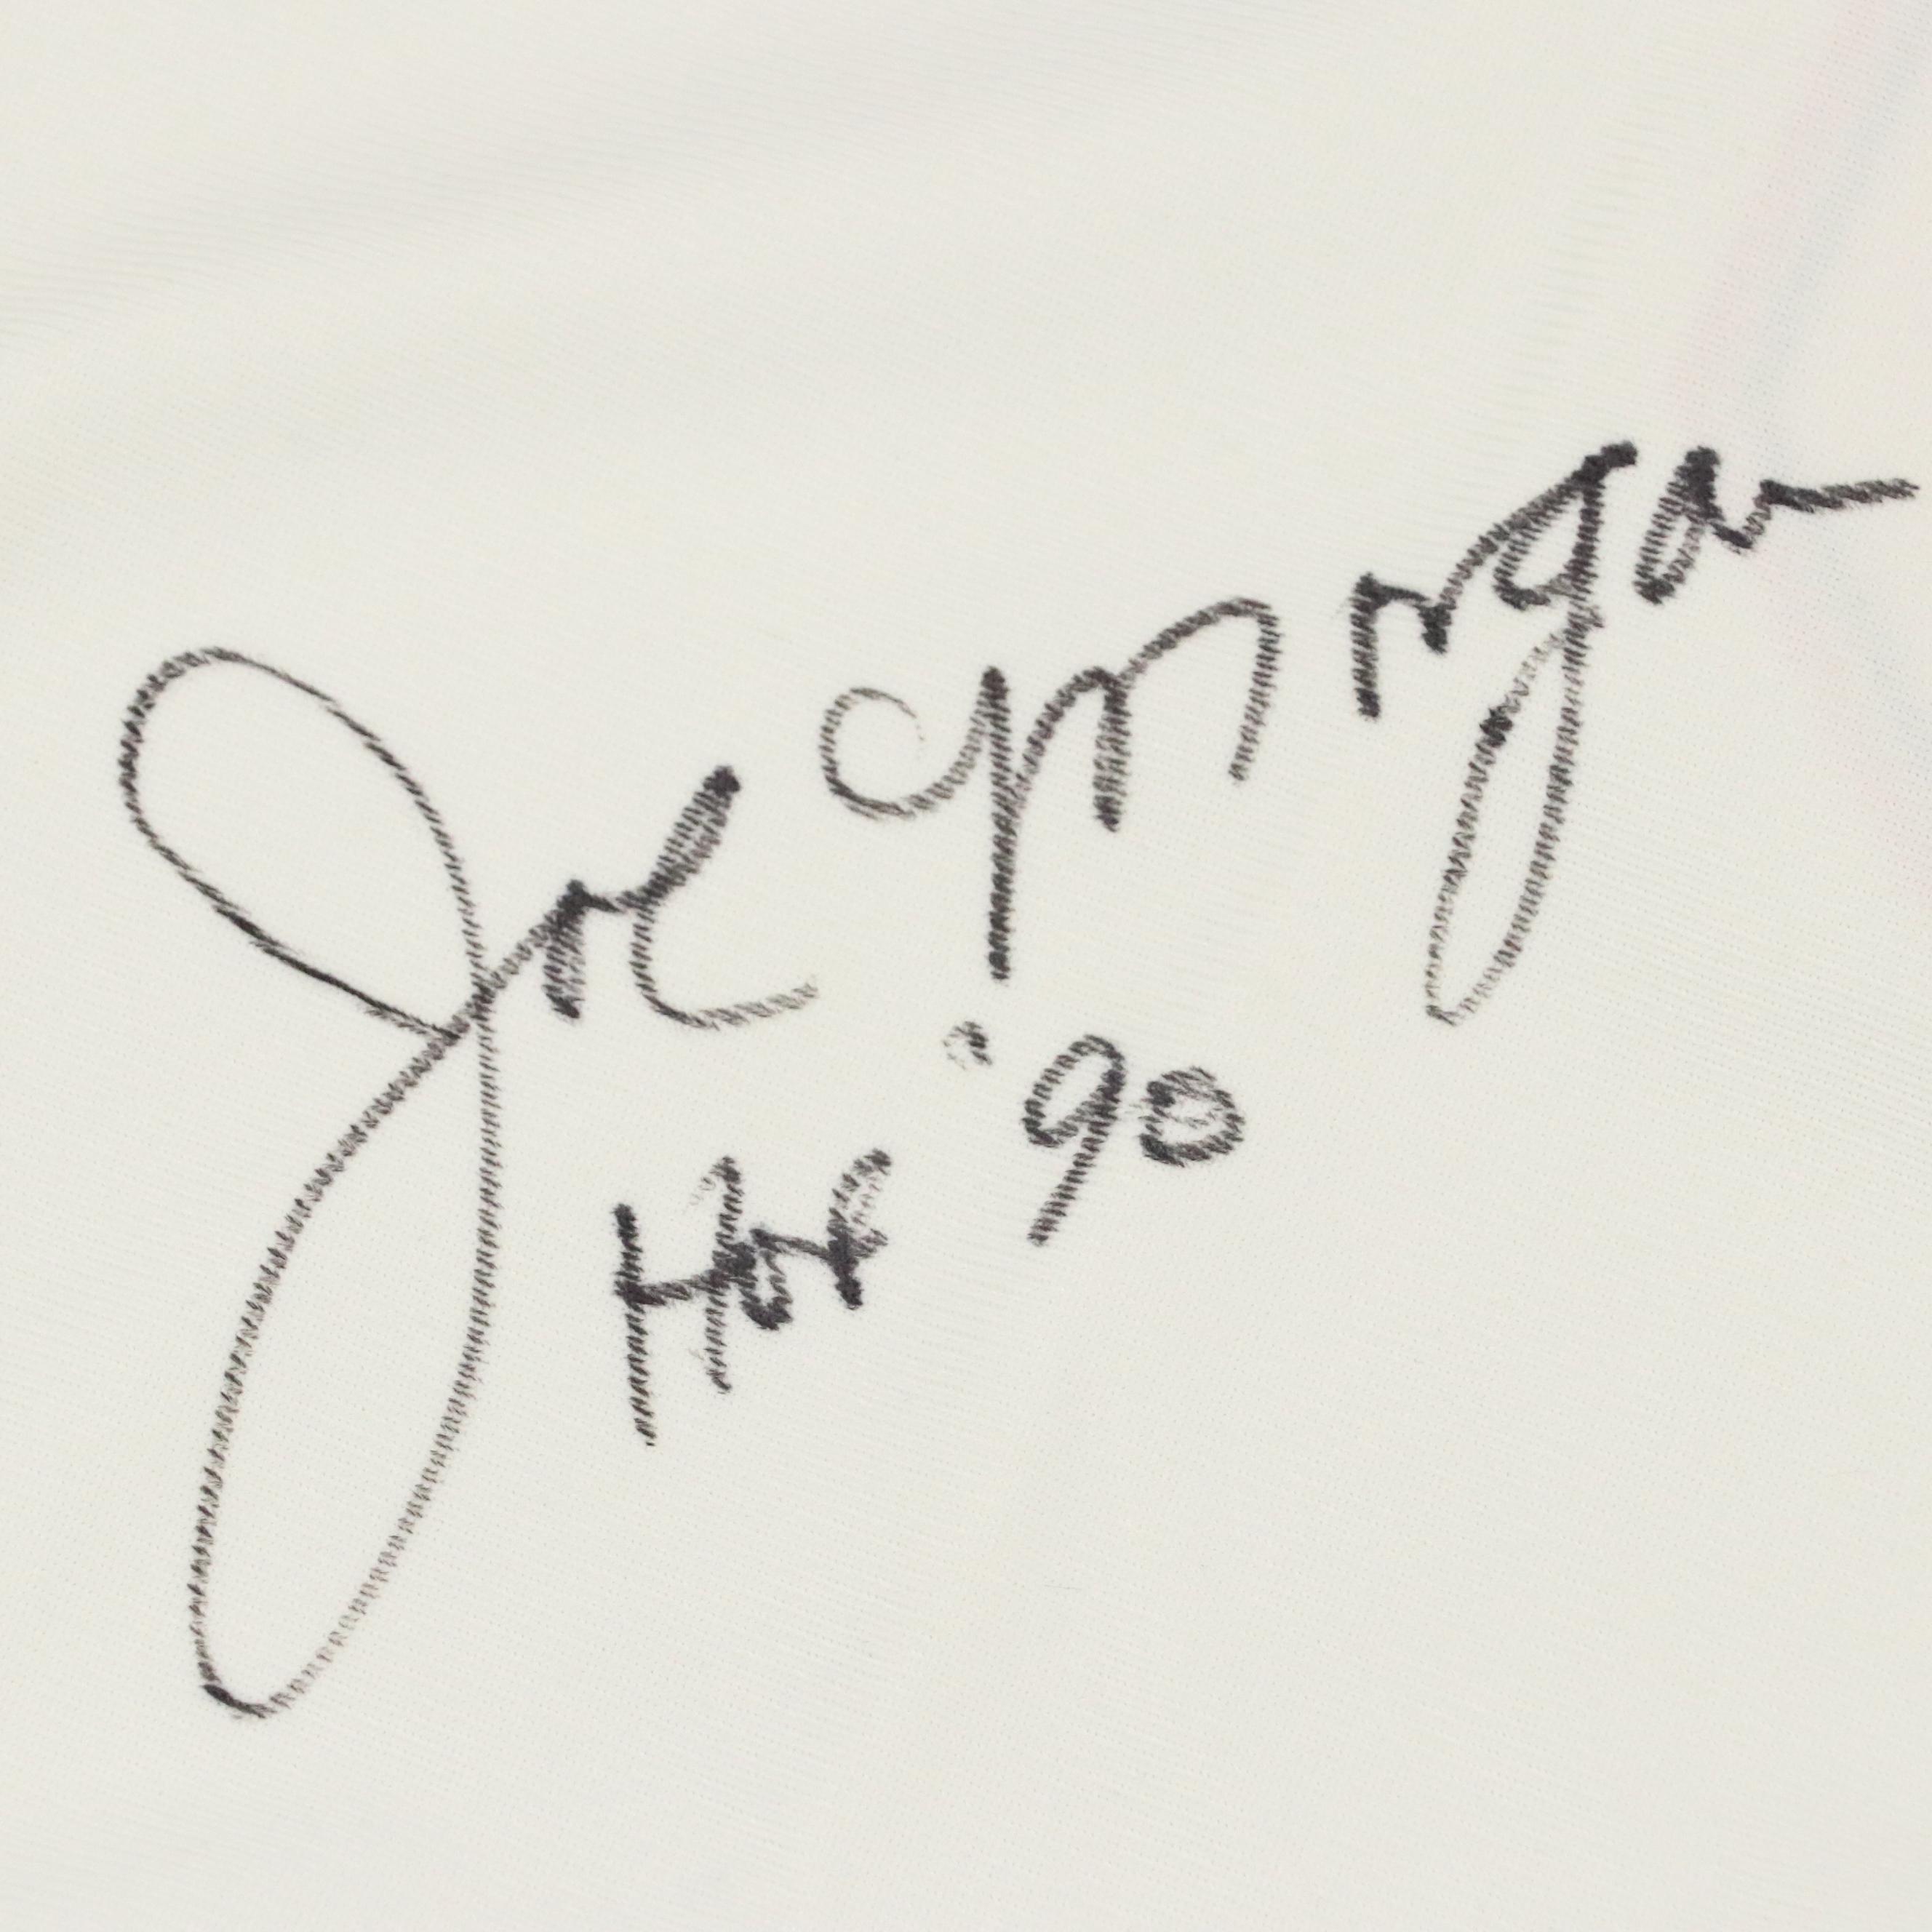 Joe Morgan
HOF '90